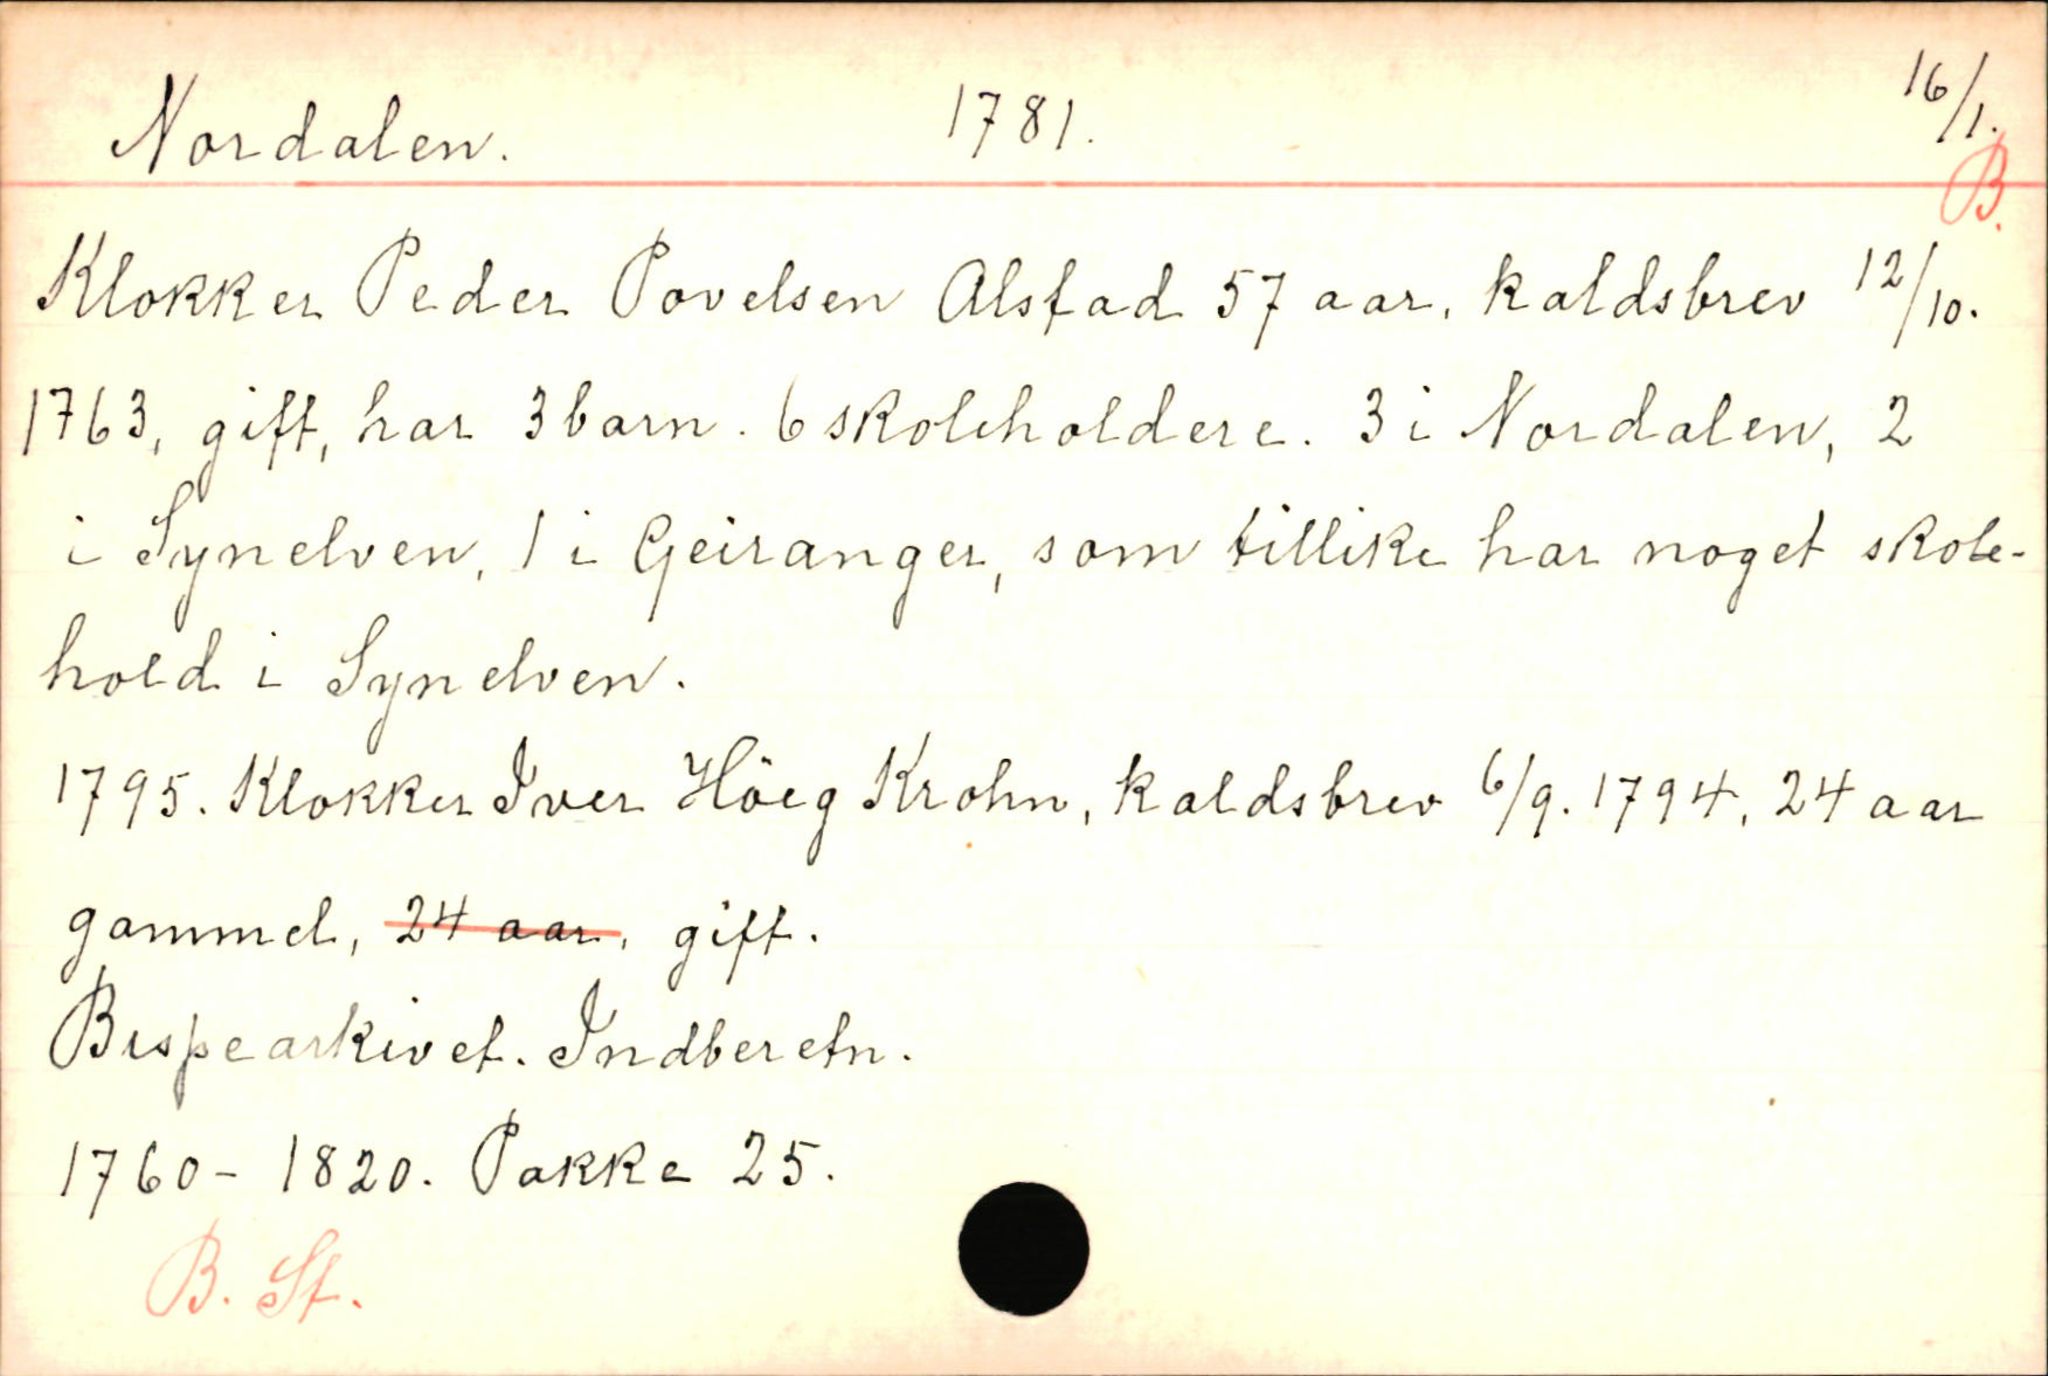 Nordalen. 1781. 16/1.
B.
Klokker Peder Povelsen Alstad 57 aar, kaldsbrev 12/10.
1763, gift, har 3 barn. 6 skoleholdere. 3 i Nordalen, 2
i Synelven, 1 i Geiranger, som tillike har noget skole-
hold i Synelven.
1795. Klokker Iver Höeg Krohn, kaldsbrev 6/9. 1794, 24 aar
gammel, 24 aar, gift.
Bispearkivet. Indberetn.
1760-1820. Pakke 25.
B. St.